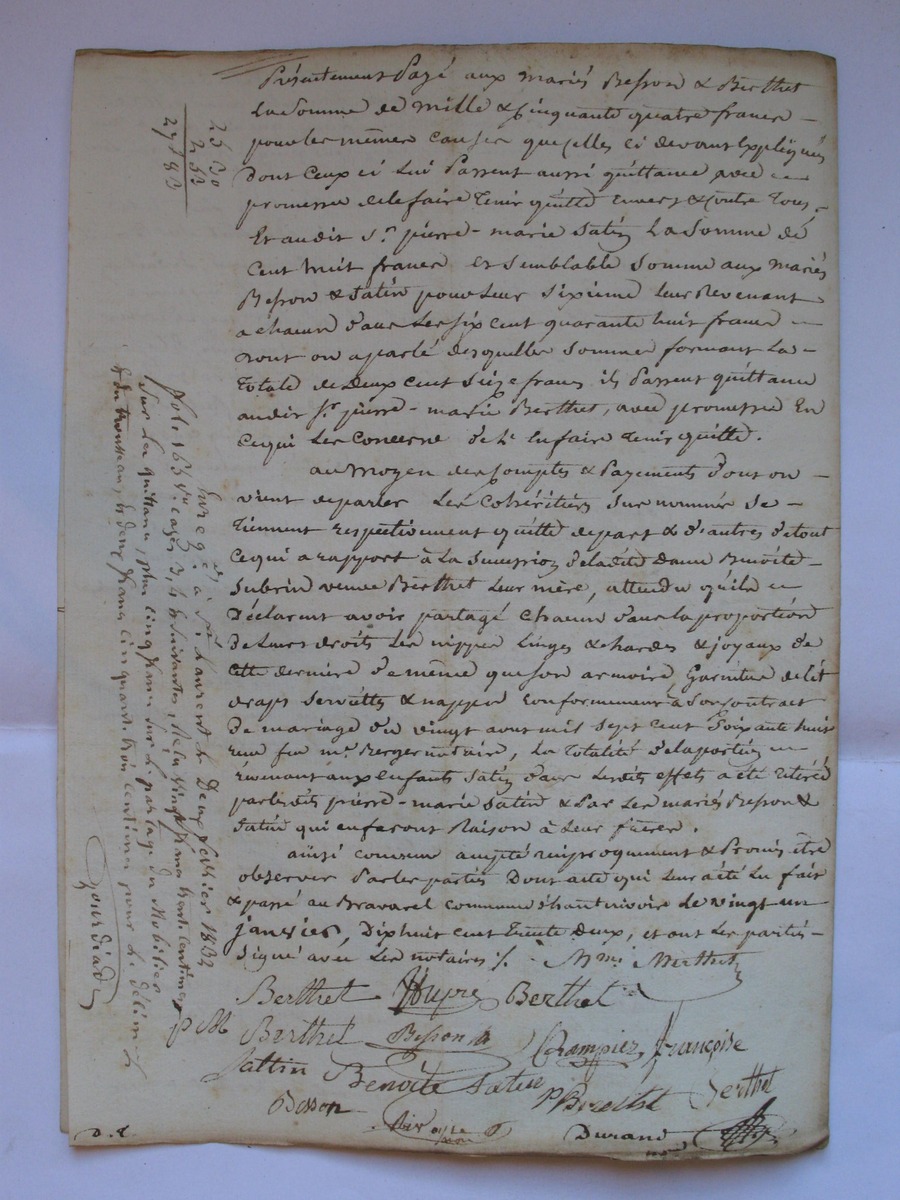 Présentement Payé aux mariés Besson & Berthet
La Somme de mille & Cinquante quatre francs –
pour les mêmes causes que Celles ci devant Expliqués
Dont Ceux ci Lui Passent aussi quittance avec
promesse de le faire Tenir quitte envers & Contre Tous.
Et audit Sr. pierre-marie Satin La Somme de
Cent huit francs et Semblable Somme aux mariés
Besson & Satin pour Leur Sixieme Leur Revenant
a chacun dans Les Six cent quarante huit francs
dont on a parlé desquelles Sommes formant La
Totale de Deux Cent Seize francs ils Passent quittance
audit Sr. pierre-marie Berthet, avec promesse En
Cequi Les Concerne de L'en faire Tenir quitte.
au moyen des Comptes & Payements Dont on –
vient deparler Les Cohéritiers Sus nommés Se
Tiennent respectivement quitte depart & d'autres de tout
Cequi a rapport à La Succession de ladite Dame Benoîte
Subrin veuve Berthet Leur mère, attendu qu'ils
Déclarent avoir partagé Chacun dans La proportion
De Leurs droits Les nippes Linges & hardes & joyaux de
Cette derniere de même que son armoire Garniture de lit
draps Serviette & nappes Conformement à Son Contrat
De mariage du vingt avril mil Sept Cent Soixante huit
Recu feu me. Berger notaire, La Totalité de la portion
revenant aux enfants Satin dans Lesdits effets a été retirée
par lesdits pierre-marie Satin & Par Les mariés Besson &
Satin qui en feront Raison à Leur frères.
ainsi convenu accepté réciproquement & Promis être
observer Par les parties Dont acte qui Leur a été Lu fait
& passé au Bravarel Commune de hauterivoire le vingt un
janvier, Dix huit Cent Trente Deux, et ont Les parties
Signé avec Les notaires ./. Mmi Berthet
Berthet Dupré Berthet
P M Berthet Besson Champier françoise
Sattin Benoite Satin
Besson P Berthet Berthet
Durand
D. L.
25 30
2 53
27 83
Enregé. à St. Laurent le Deux février 1832
fol. 163 Vo. cases 3, & suivantes, Reçu vingt
Sur La quittance, plus Cinq francs Sur le partage du Mobilier
& du trousseau, & deux francs Cinquante trois centimes pour Le décime